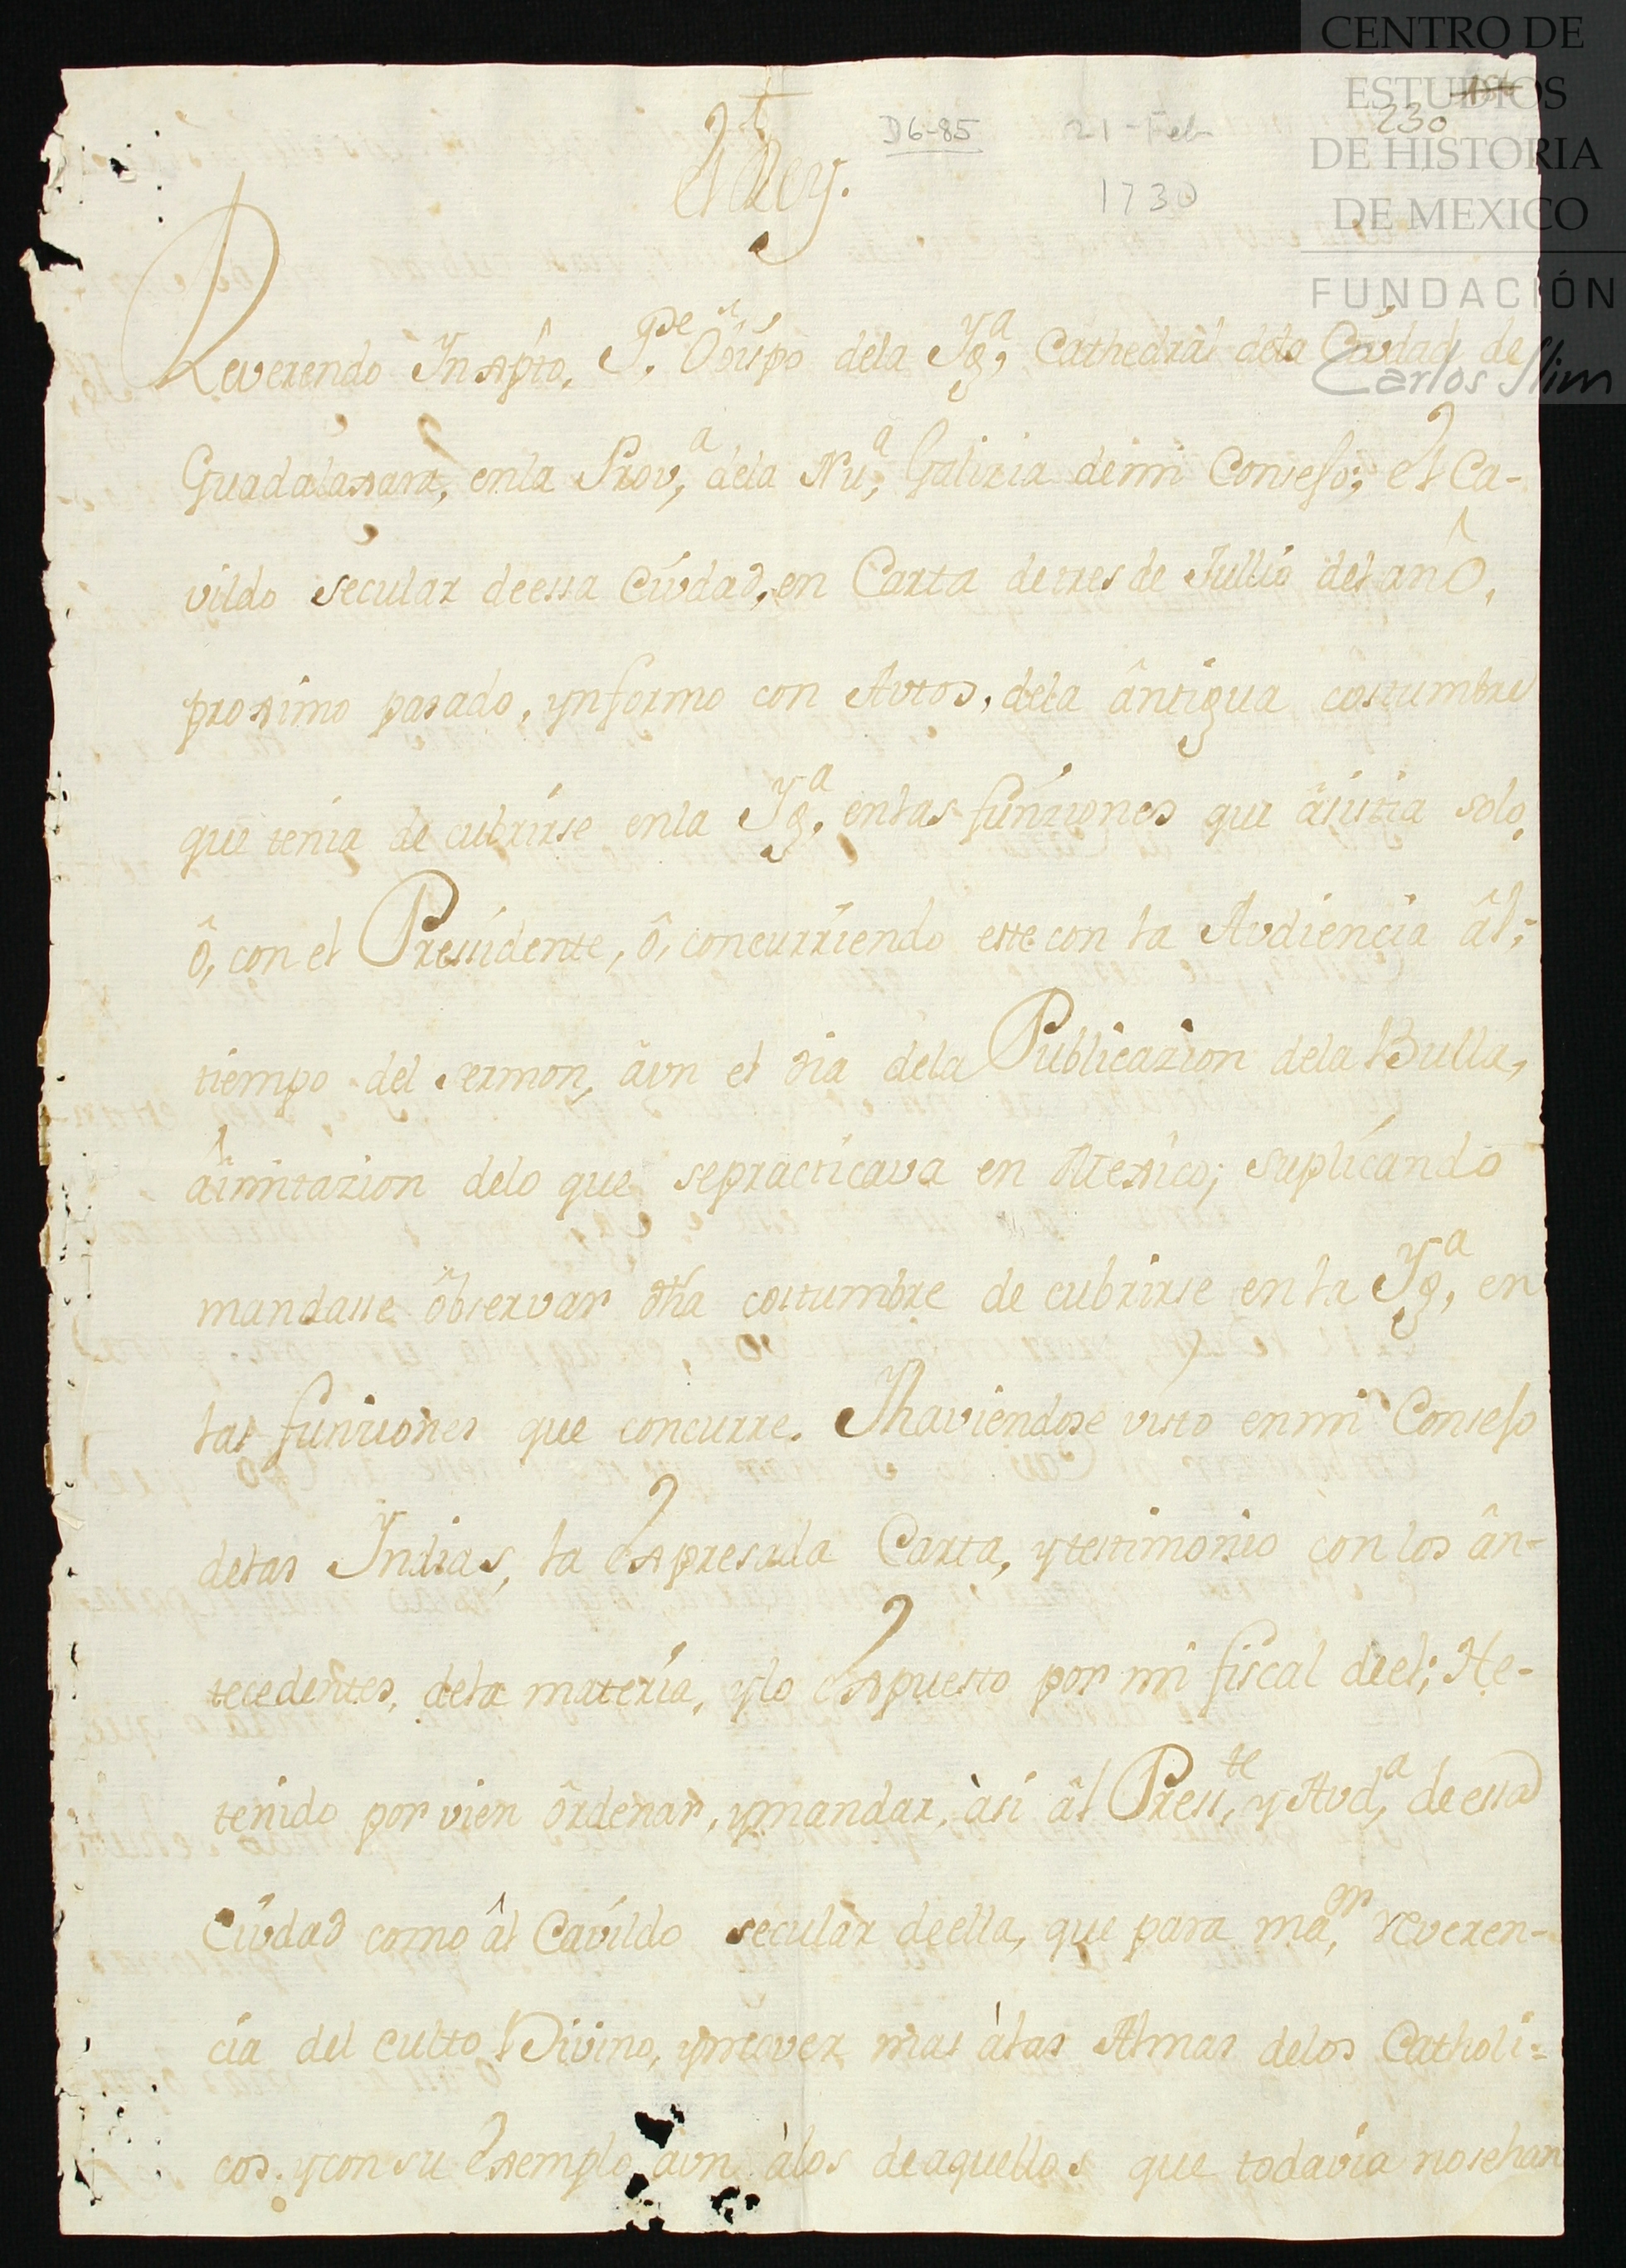 CENTRO DE
ESTUDIOS
DE HISTORIA
DE MEXICO
FUNDACIÓN
Carlos Slim
230
D6-85 21-Feb
1730
el Rey.
Reverendo In Xpto, Pe. Obispo dela Yga, Cathedral dela Ciudad de
Guadalaxara, enla Prova, dela Nua, Galizia demi Consejo; el Ca-
vildo secular deessa Ciudad, en Carta detres de Jullio del anô,
proximo pasado, ynformo con Autos, dela ântigua costumbre
que tenia de cubrirse enla Yga, enlas funziones que âsistia solo,
ô, con el Pressidente, ô, concurriendo este con la Audiencia âl,
tiempo del sermon, âun el dia dela Publicazion dela Bulla,
âimitazion delo que sepracticava en Mexico; suplicando
mandasse ôbservar dha costumbre de cubrirse en la Yga, en
las funziones que concurre. Yhaviendose visto enmi Consejo
delas Indias, la expresada Carta, ytestimonio con los ân-
tecedentes, dela materia, ylo expuesto por mi fiscal deel; He-
tenido por vien ôrdenar, ymandar, àsi âl Presste, y Auda, de essa
Ciudad como âl Cavildo secular deella, que para maor, reveren-
cia del culto Divino, ymover mas àlas Almas delos Catholi-
cos. yconsu exemplo aun àlos deaquellos que todavia nosehan